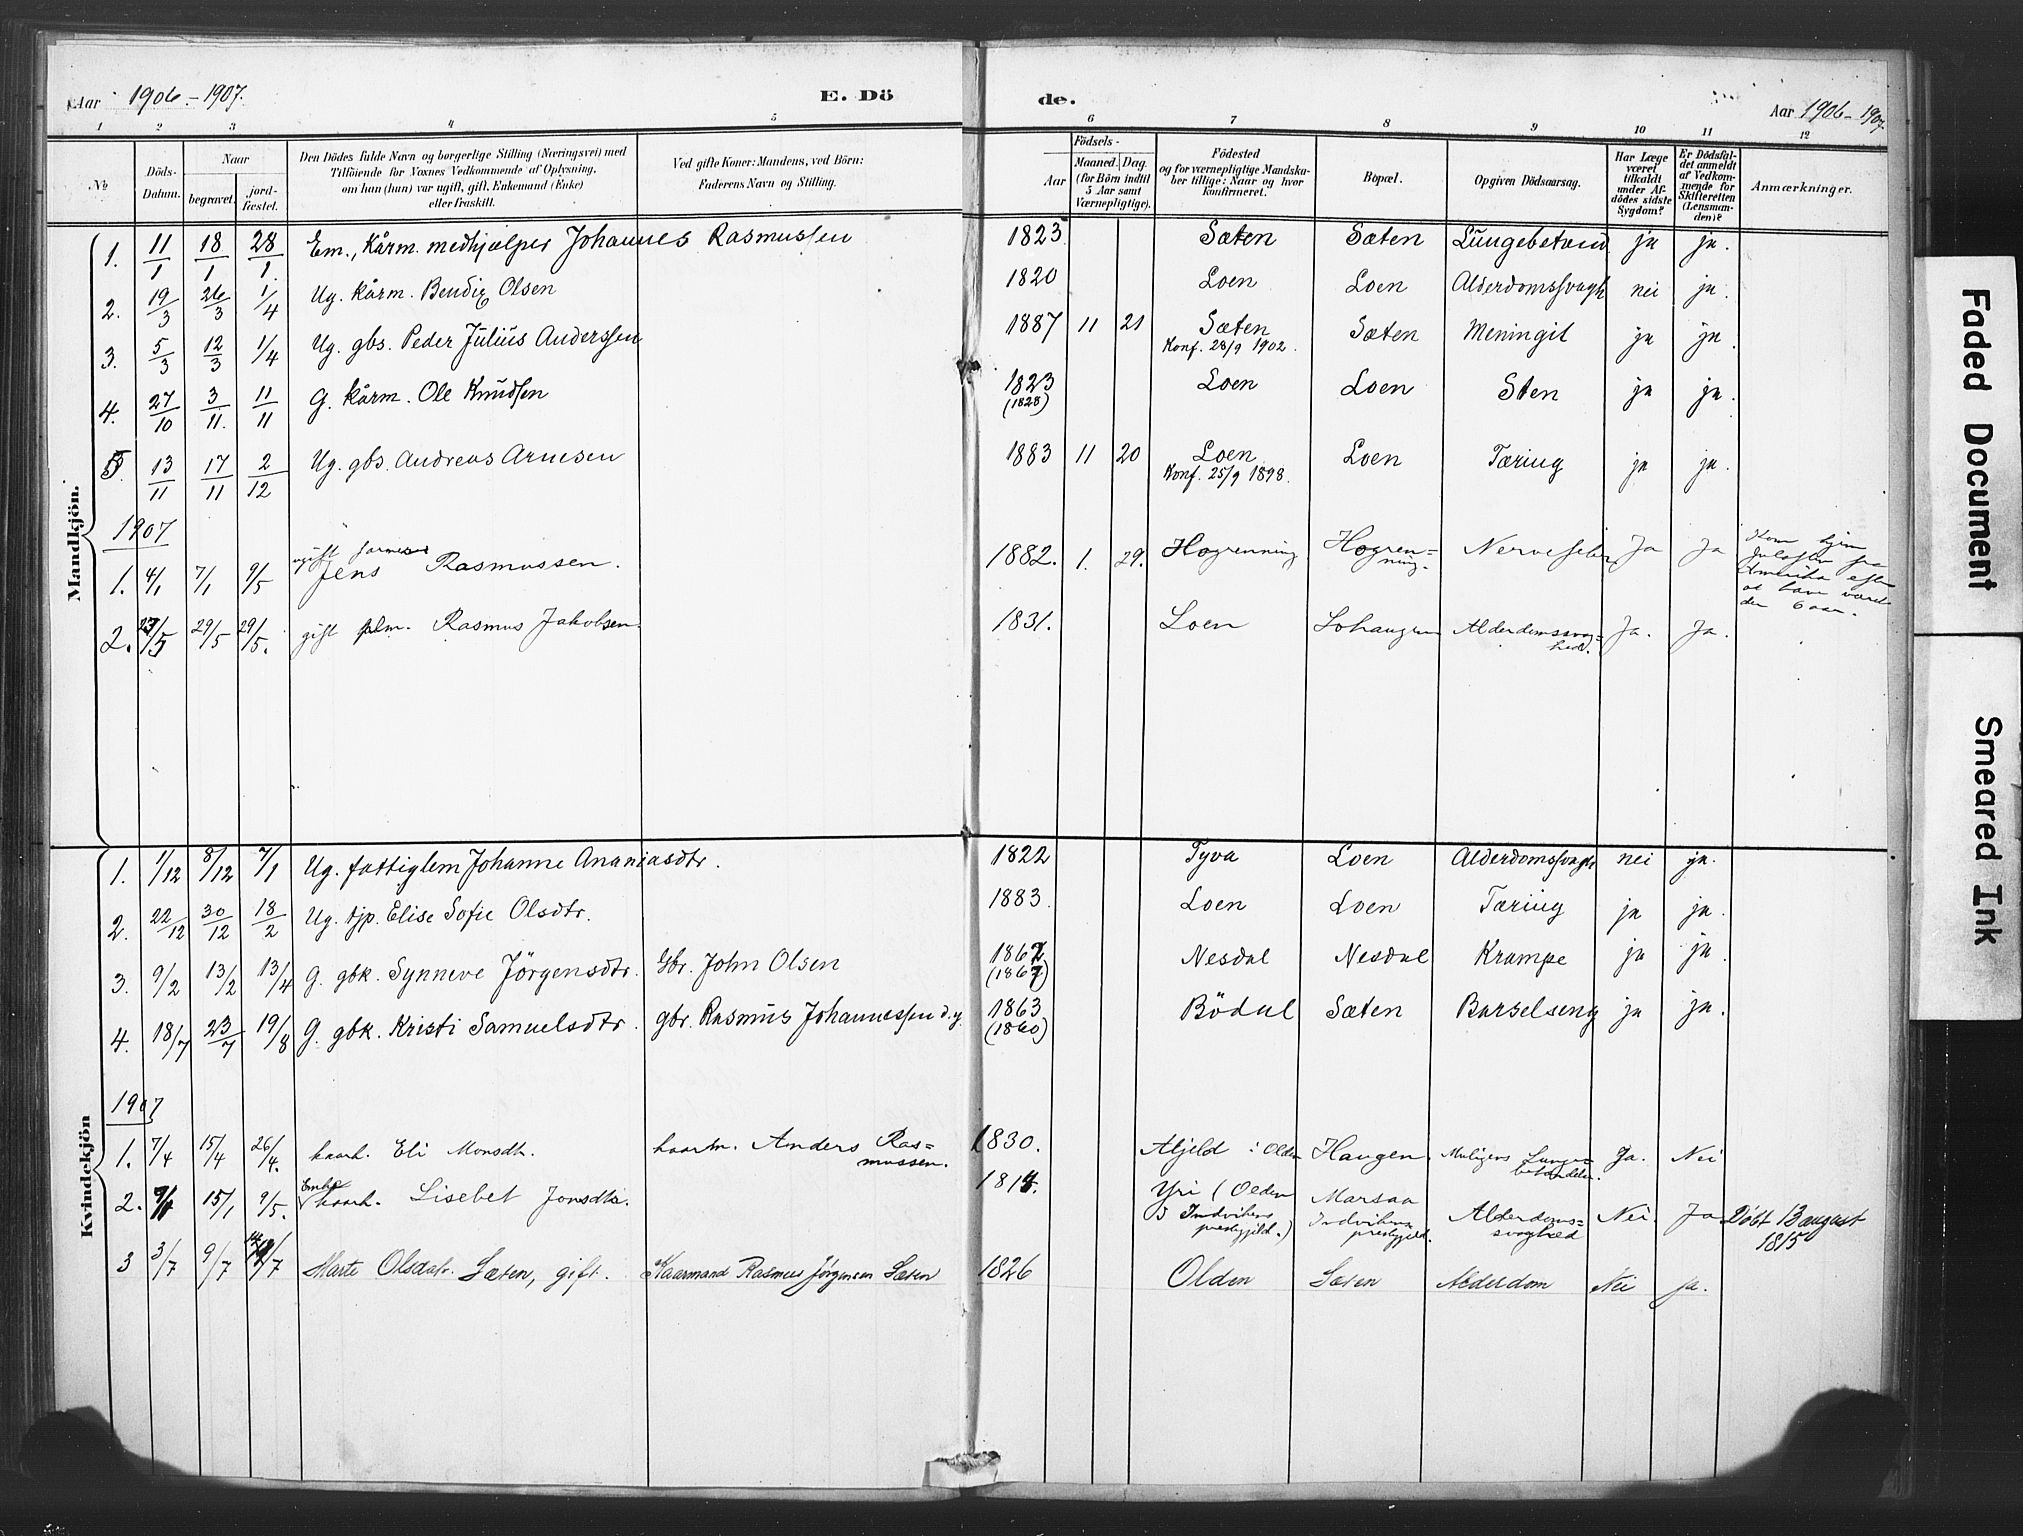 Aar 1906.-1907. E. Dö de. Aar 1906-1907.
1 2 3 4 5 6 7 8 9 10 11 12
№
Döds-Datum.
Naar
begravet. jord-fæstet.
Den Dödes fulde Navn og borgerlige Stilling (Næringsvei) med
Tilföiende for Voxnes Vedkommende af Oplysning,
om han (hun) var ugift, gift, Enkemand (Enke)
eller fraskilt.
Ved gifte Koner: Mandens, ved Börn:
Faderens Navn og Stilling.
Födsels-
Aar Maaned. Dag.
(for Börn indtil
5 Aar samt
Værnepligtige).
Födested
og for værnepligtige Mandska-
ber tillige: Naar og hvor
konfirmeret.
Bopæl.
Opgiven Dödsaarsag.
Har Læge
været
tilkaldt
under Af-
dödes sidste
Sygdom?
Er Dödsfal-
det anmeldt
af Vedkom-
mende for
Skifteretten
(Lensman-
den)?
Anmærkninger.
Mandkjön.
1. 11/1 18/1 28/1. Em., Kårm. medhjælper Johannes Rasmussen 1823 Sæten Sæten Lungebetænd ja ja.
2. 19/3 26/3 1/4 Ug. kårm. Bendix Olsen 1820 Loen Loen Alderdomssvagh nei ja.
3. 5/3 12/3 1/4 Ug. gbs. Peder Julius Anderssen 1887 11 21 Sæten Sæten Meningit ja ja.
Konf. 28/9 1902.
4. 27/10 3/11. 11/11 G. kårm. Ole Knudsen 1823 Loen Loen Sten ja ja.
(1828)
5. 13/11 17/11 2/12 Ug. gbs. Andreas Arnesen 1883 11 20 Loen Loen Tæring ja ja.
Konf. 25/9 1898.
1907
1. 4/1 7/1 9/5 ugift Jens Rasmussen. 1882. 1. 29. Hogrenning Hogren=ning. Ja Ja
Kom hjem
Amerika
at have været
der 6 aar.
2. 23/5 29/5 29/5. gift Rasmus Jakobsen. 1831. Loen Alderdomssvag=hed. Ja. Ja.
Kvindekjön
1. 1/12 8/12 7/1 Ug. fattiglem Johanne Ananiasdtr. 1822 Tyva Loen Alderdomssvagh nei ja.
2. 22/12 30/12 18/2 Ug. tjp. Elise Sofie Olsdtr. 1883. Loen Loen Tæring ja ja.
3. 9/2 13/2 13/4 G. gbk. Synneve Jörgensdtr. Gbr. John Olsen 1862 Nesdal Nesdal Krampe ja ja.
4. 18/7 23/7 19/8 G. gbk. Kristi Samuelsdtr. gbr. Rasmus Johannessen d.y. 1863 Bödal Sæten Barselseng ja ja.
(1860)
1907
1. 7/4 15/4 26/4. kaark. Eli Monsdtr. kaarm. Anders Ras=mussen. 1830. i Olden Haugen. Muligens Lunge-betændelse. Ja. Nei
2. 15/1 9/5. Enke kaark. Lisebet Jonsdtr. Yri (Olden
i Indvikens
prestgjeld.) Marsaa
Indvikens
prestgjeld. Alderdoms=svaghed Nei. Ja Döbt 13 august
1815
3 3/7 9/7 Marte Olsdatr. Sæten, gift. Kaarmand Rasmus Jørgensen Sæten 1826 Olden Sæten Alderdom Nei ja.
Faded Document
Smeared Ink